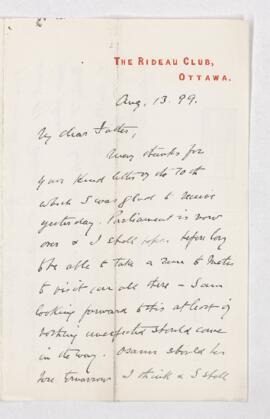 THE RIDEAU CLUB,
OTTAWA.
Aug. 13. 99.
My dear Father,
Many thanks for
your kind letter of the 10th
which I was glad to receive
yesterday. Parliament is now
over & I shall before long
be able to take a run to
to visit you all there — I am
looking forward to this at least if
nothing unexpected should come
in the way. should be
here tomorrow I think & I shall